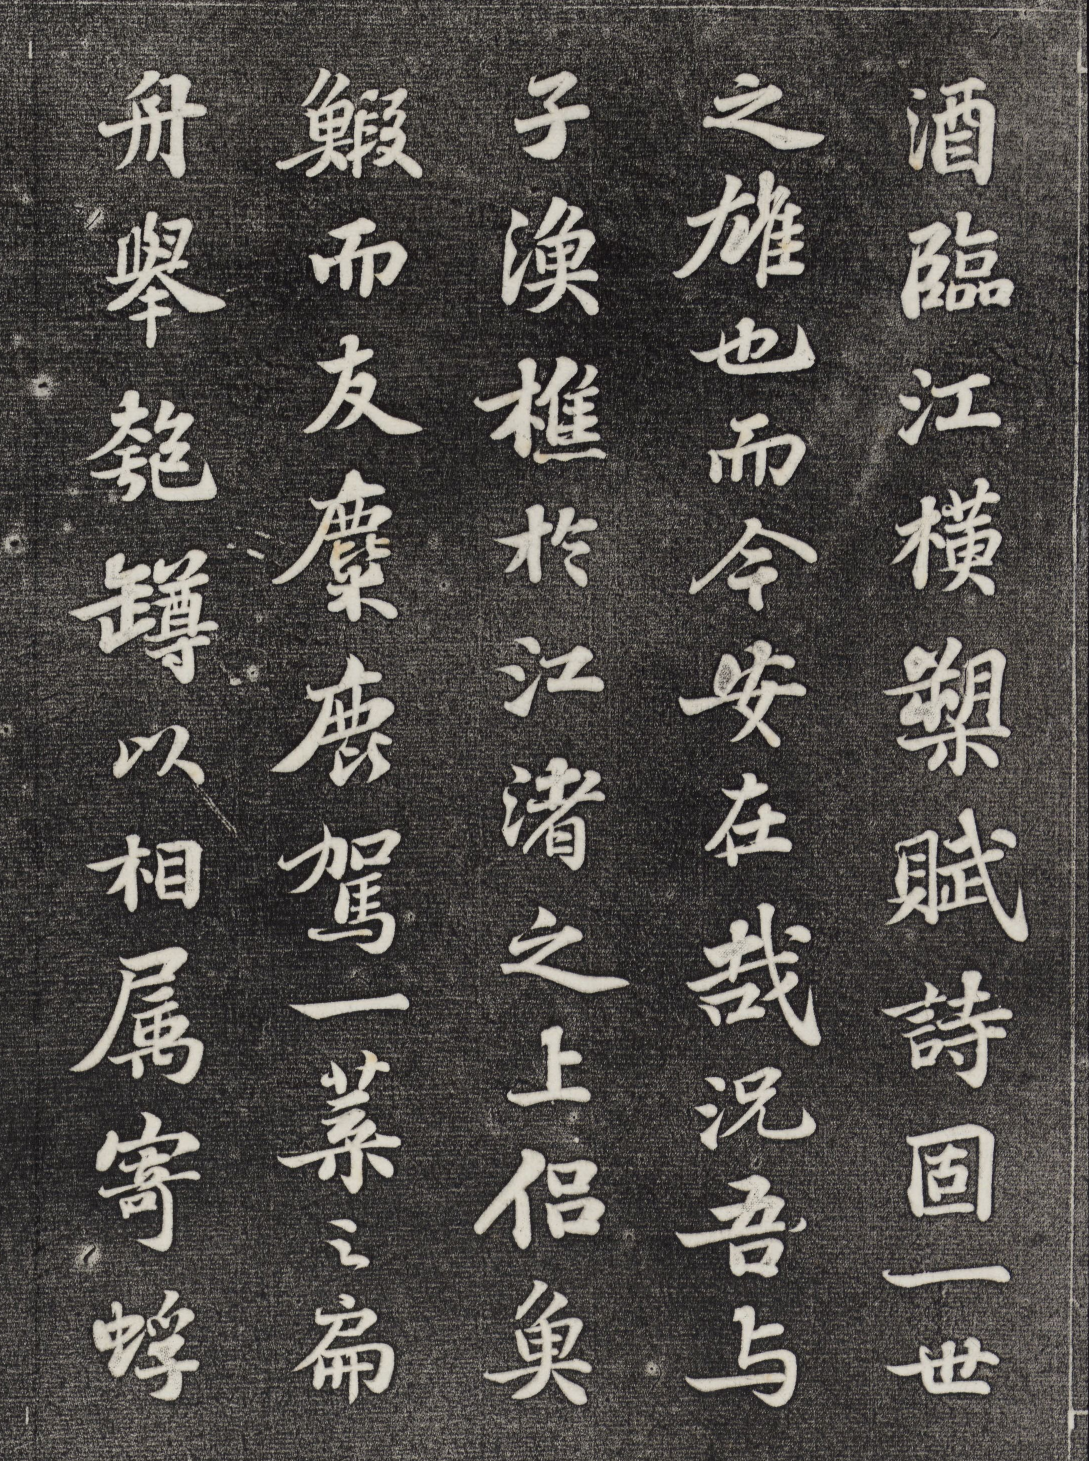 酒臨江橫槊賦詩固一世
之雄也而今安在哉況吾与
子漁樵於江渚之上侣魚
鰕而友麋鹿駕一葉之扁
舟舉匏罇以相属寄蜉